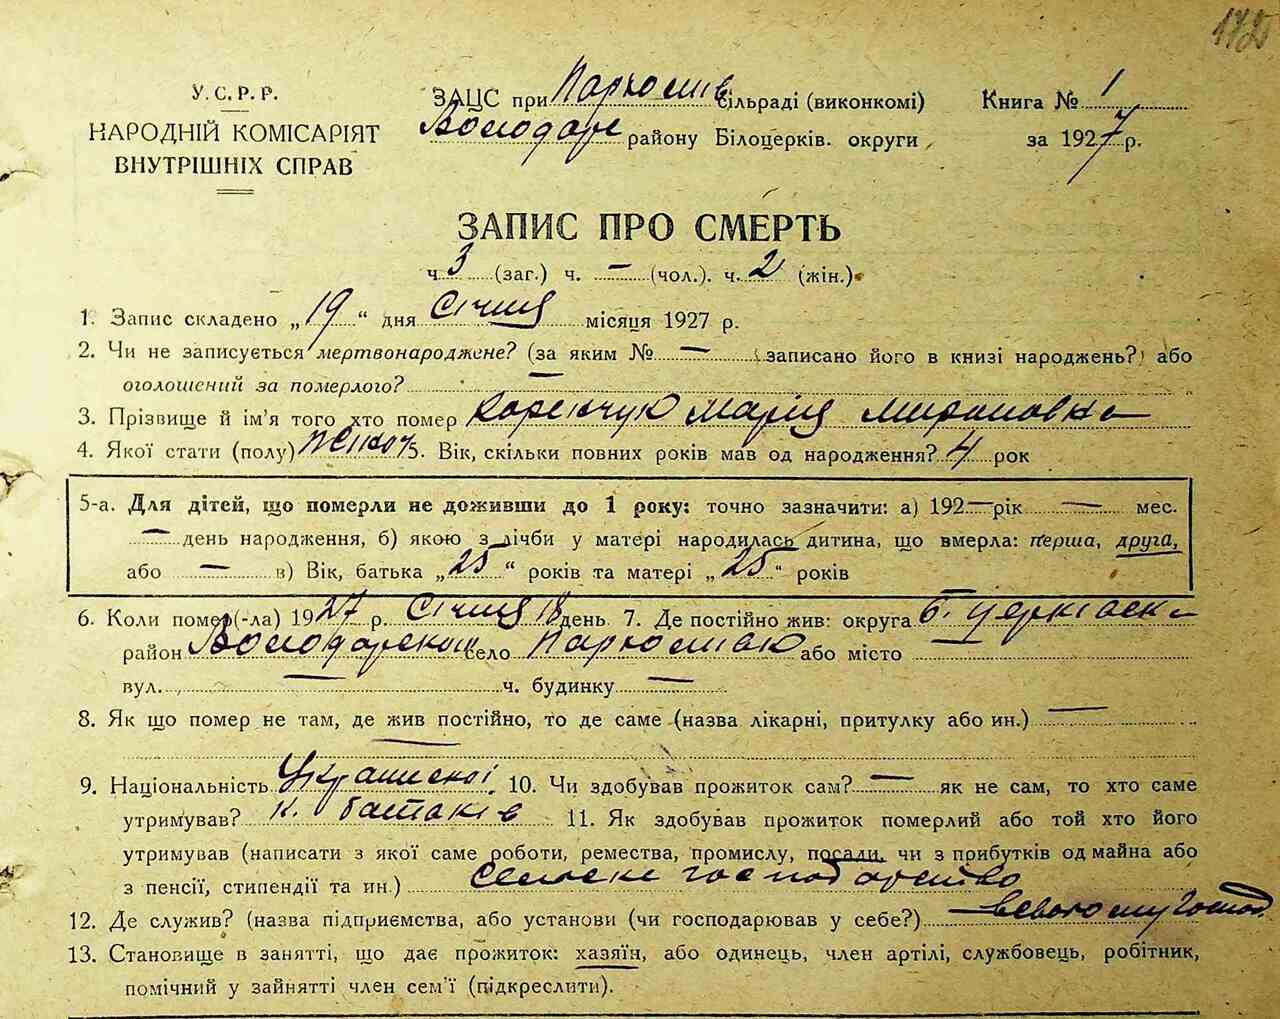 172
У.С.Р.Р.
НАРОДНІЙ КОМІСАРІЯТ
ВНУТРІШНІХ СПРАВ
ЗАЦС при Пархомів сільраді (виконкомі)
Володарс району Білоцерків. округи
Книга № 1
за 1927 р.
ЗАПИС ПРО СМЕРТЬ
ч. 3 (заг.) ч. — (чол.). ч. 2 (жін.)
1. Запис складено „19“ дня Січня місяця 1927 р.
2. Чи не записується мертвонароджене? (за яким № — записано його в книзі народжень?) або
оголошений за померлого? —
3. Прізвище й ім'я того хто помер Марія Мироновна
4. Якої стати (полу) жіноч. Вік, скільки повних років мав од народження? 4 рок
5-а. Для дітей, що померли не доживши до 1 року: точно зазначити: а) 192 — рік — мес.
— день народження, б) якою з лічби у матері народилась дитина, що вмерла: перша, друга,
або — в) Вік, батька „25“ років та матері „25“ років
6. Коли помер(-ла) 1927 р. Січня 18 день 7. Де постійно жив: округа Б. Церківск
район Володарском село Пархомівю або місто —
вул. — ч. будинку —
8. Як що помер не там, де жив постійно, то де саме (назва лікарні, притулку або ин.) —
9. Національність Украінскоі 10. Чи здобував прожиток сам? — як не сам, то хто саме
утримував? батьків 11. Як здобував прожиток померлий або той хто його
утримував (написати з якої саме роботи, ремества, промислу, посади, чи з прибутків од майна або
з пенсії, стипендії та ин.) Сельске господарство
12. Де служив? (назва підприємства, або установи (чи господарював у себе?) — всвоєму господ
13. Становище в занятті, що дає прожиток: хазяїн, або одинець, член артілі, службовець, робітник,
помічний у зайнятті член сем'ї (підкреслити).